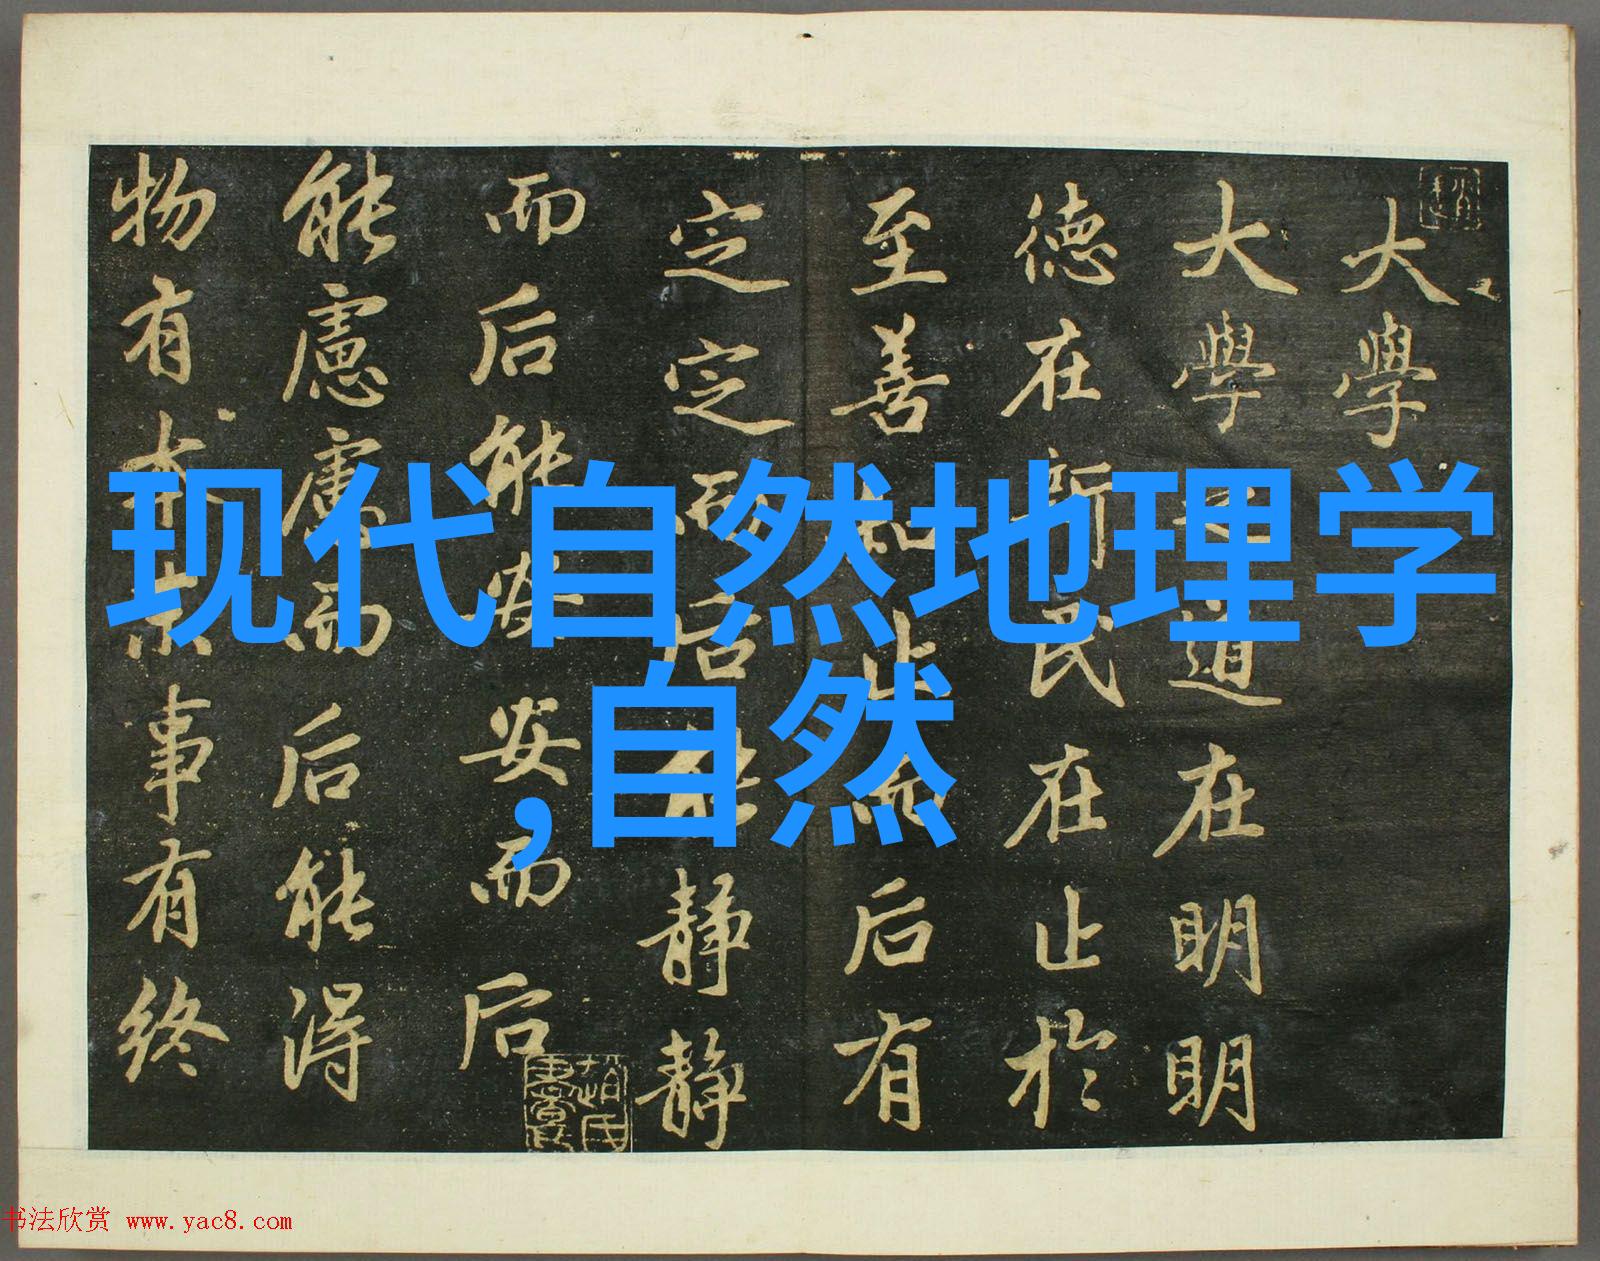 大學
大學之道在明明
德在新民在止於
至善知止而后有
定定而后能静静
而后能安安而后
能慮慮而后能得
物有本末事有終
现代自然地理学
,自然
书法欣赏 www.yac8.com